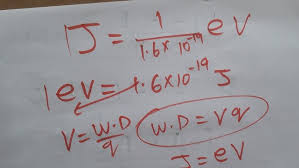 1J = 1/1.6×10⁻¹⁹ eV
1eV = 1.6×10⁻¹⁹ J
V = W.D/q W.D = Vq
J = eV